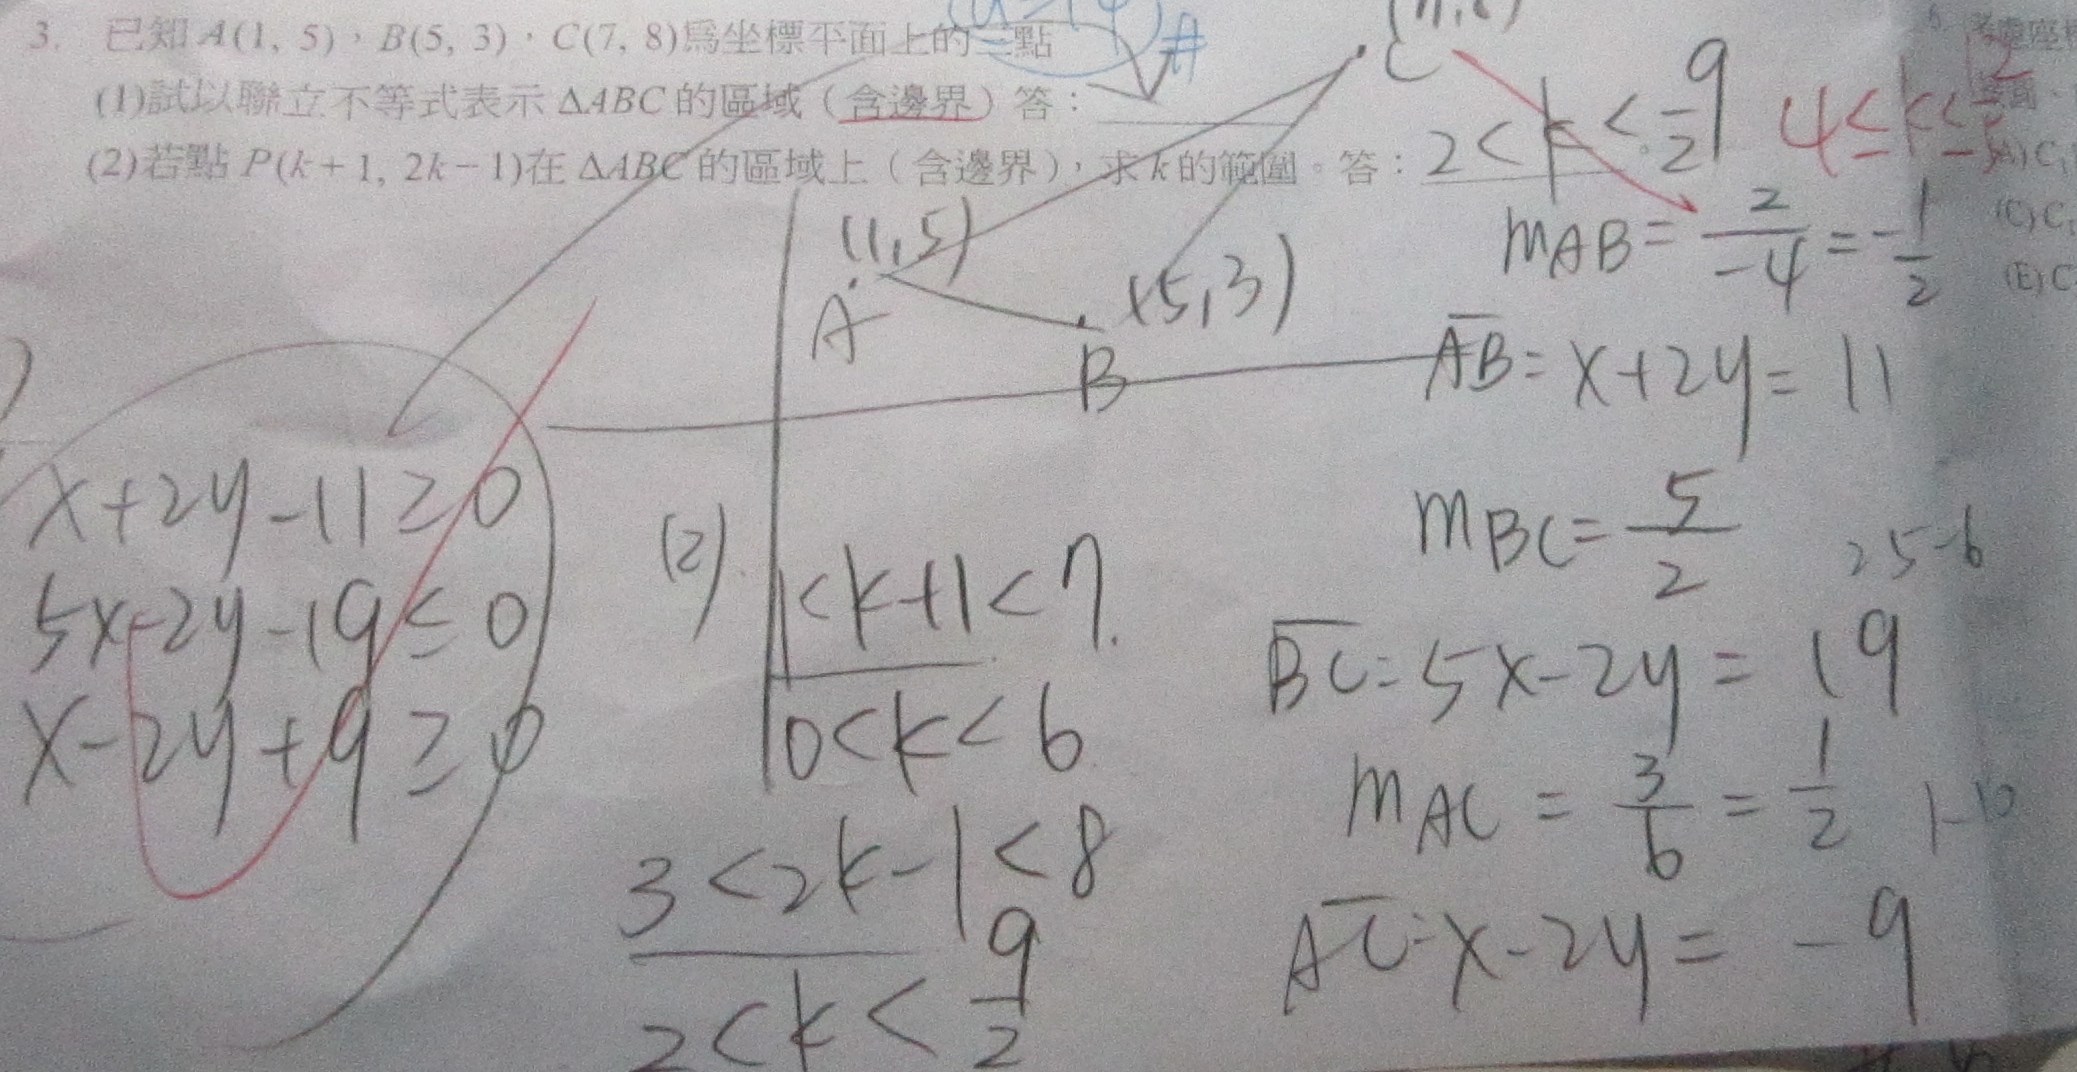 3. 已知 A(1, 5)，B(5, 3)，C(7, 8)爲坐標平面上的三點
(1)試以聯立不等式表示 ΔABC 的區域（含邊界）答：
(2)若點 P(k+1, 2k−1)在 ΔABC 的區域上（含邊界），求 k 的範圍。答：2<k<9/2
4≤k≤
C
(1,5)
A
(5,3)
B
mAB = 2/-4 = -1/2
AB = x+2y = 11
mBC = 5/2
25-6
BC = 5x-2y = 19
mAC = 3/6 = 1/2
1-10
AC = x-2y = -9
x+2y-11≥0
5x-2y-19≤0
x-2y+9≥0
(2).
1<k+1<7
0<k<6
3<2k-1<8
2<k<9/2
(C) C
(E) C